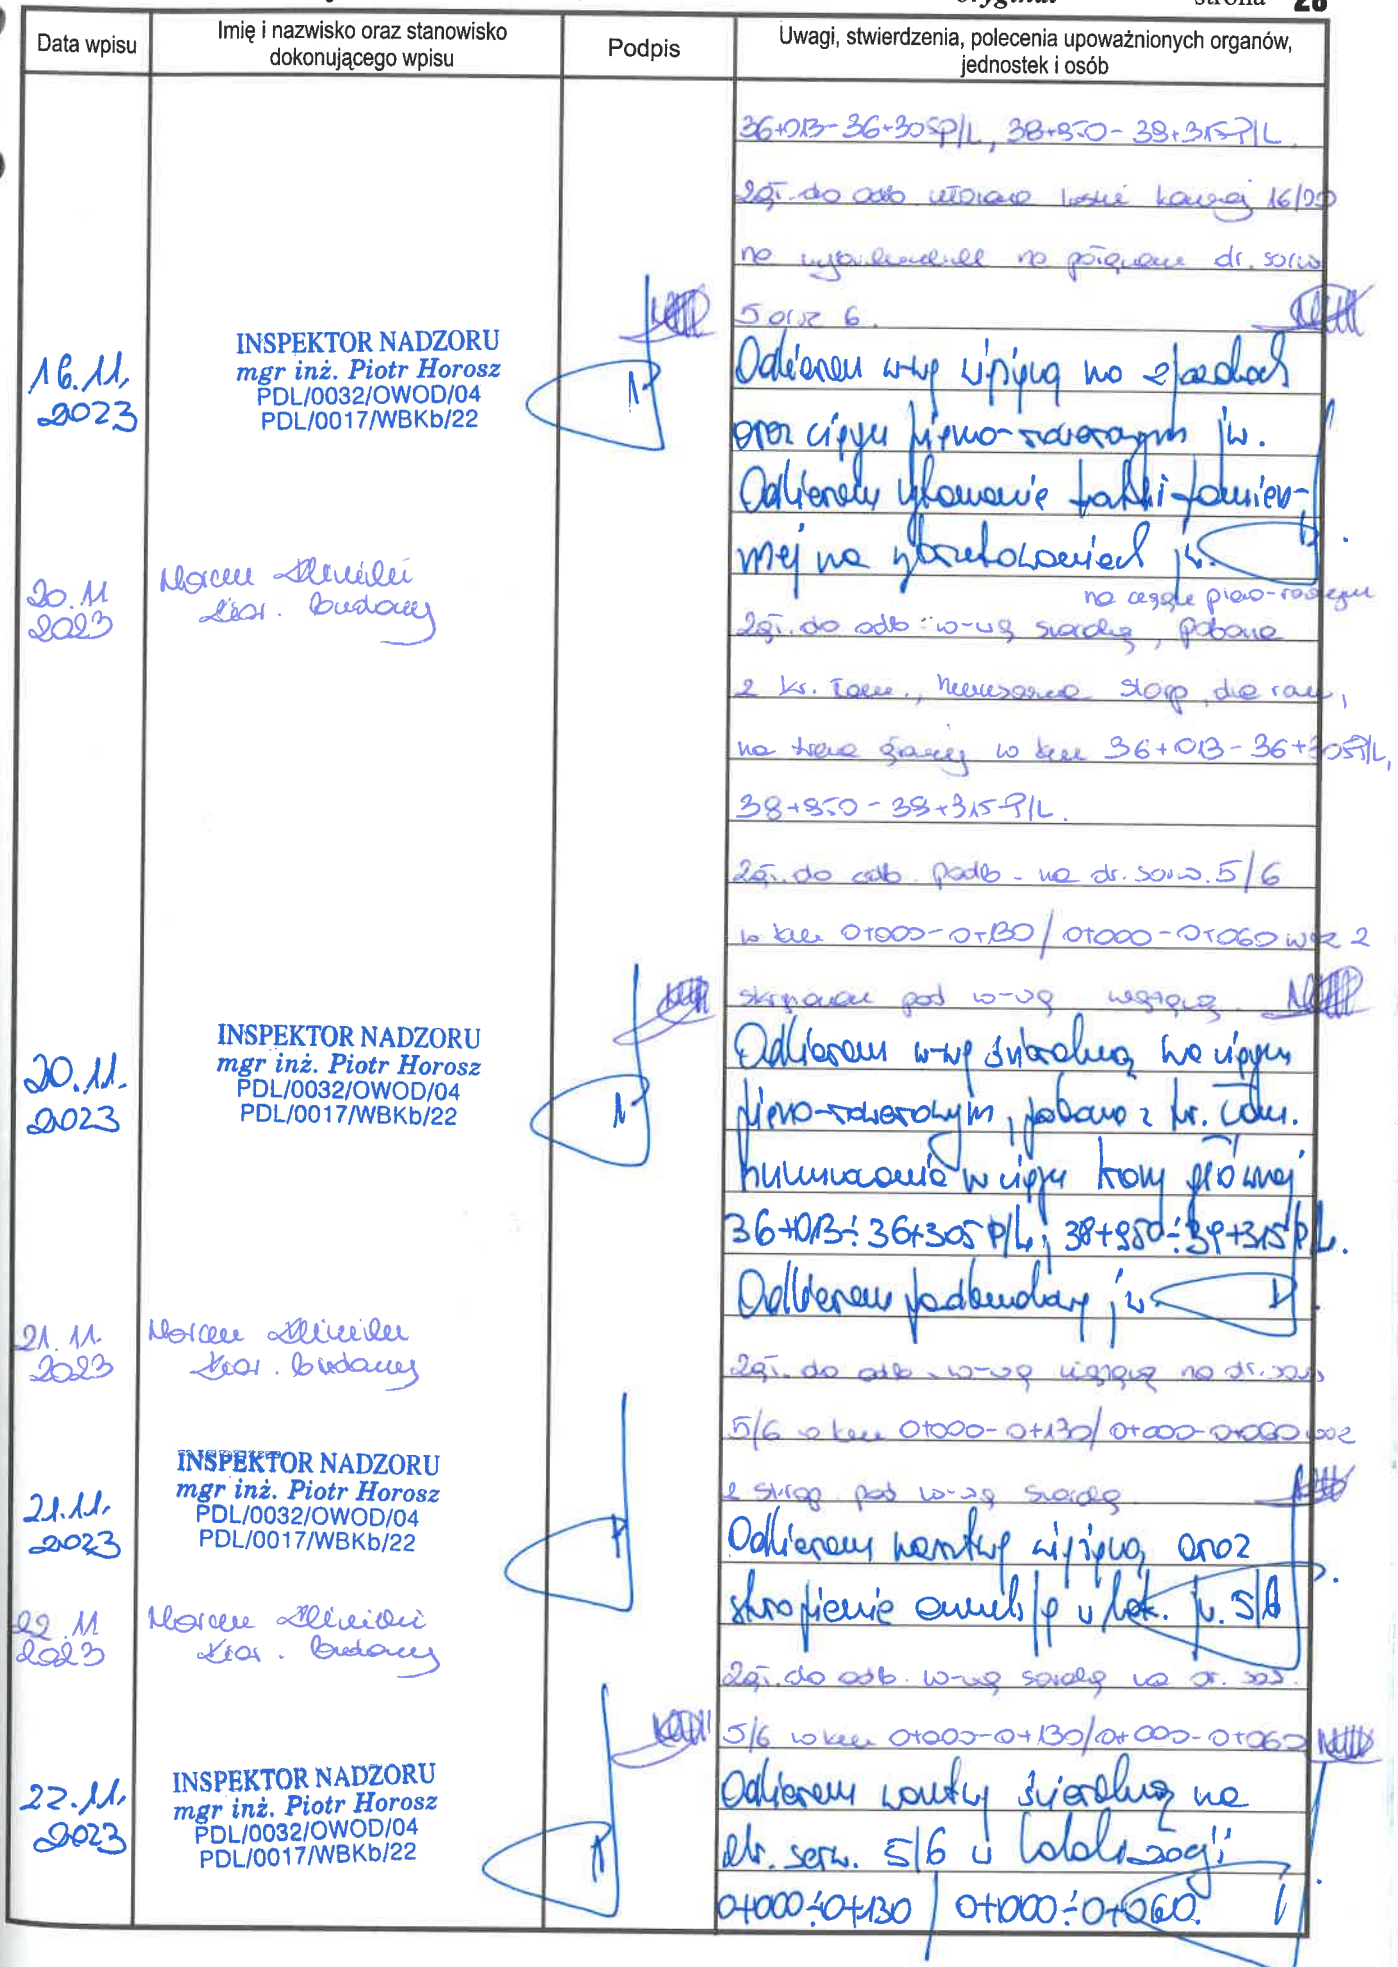 oryginał strona 28
Data wpisu
Imię i nazwisko oraz stanowisko
dokonującego wpisu
Podpis
Uwagi, stwierdzenia, polecenia upoważnionych organów,
jednostek i osób
36+013-36+305P/L, 38+950-39+315P/L.
Zgł. do odb kamiennej 16/22
na na dr. serw
5 oraz 6.
16.11.
2023
INSPEKTOR NADZORU
mgr inż. Piotr Horosz
PDL/0032/OWOD/04
PDL/0017/WBKb/22
Odbieram w-wę wiążącą na zjazdach
oraz ciągu pieszo-rowerowym jw.
Odbieram ułożenie kostki kamien-
nej na jw.
20.11
2023
Kier. budowy
na ciągu pieszo-rowerowym
Zgł. do odb w-wę ścieralną, pobocza
z kr. łam., humusowanie skarp,
na trasie głównej w km 36+013-36+305P/L,
38+950-39+315P/L.
Zgł. do odb. podb. na dr. serw. 5/6
w km 0+000-0+130/0+000-0+060 wraz z
skropieniem pod w-wę wiążącą.
20.11.
2023
INSPEKTOR NADZORU
mgr inż. Piotr Horosz
PDL/0032/OWOD/04
PDL/0017/WBKb/22
Odbieram w-wę ścieralną na ciągu
pieszo-rowerowym, pobocza z kr. łam.
humusowanie w ciągu trasy głównej
36+013÷36+305 P/L; 38+950÷39+315 P/L.
Odbieram podbudowę jw.
21.11.
2023
Kier. budowy
Zgł. do odb. w-wę wiążącą na dr. serw
5/6 w km 0+000-0+130/0+000-0+060 wraz
z skrop. pod w-wę ścieralną
21.11.
2023
INSPEKTOR NADZORU
mgr inż. Piotr Horosz
PDL/0032/OWOD/04
PDL/0017/WBKb/22
Odbieram warstwę wiążącą oraz
skropienie emulsją w lok. jw. 5/6
22.11
2023
Kier. budowy
Zgł. do odb. w-wę ścieralną na dr. serw.
5/6 w km 0+000-0+130/0+000-0+060
22.11.
2023
INSPEKTOR NADZORU
mgr inż. Piotr Horosz
PDL/0032/OWOD/04
PDL/0017/WBKb/22
Odbieram warstwę ścieralną na
dr. serw. 5/6 w lokalizacji
0+000÷0+130 / 0+000÷0+060.